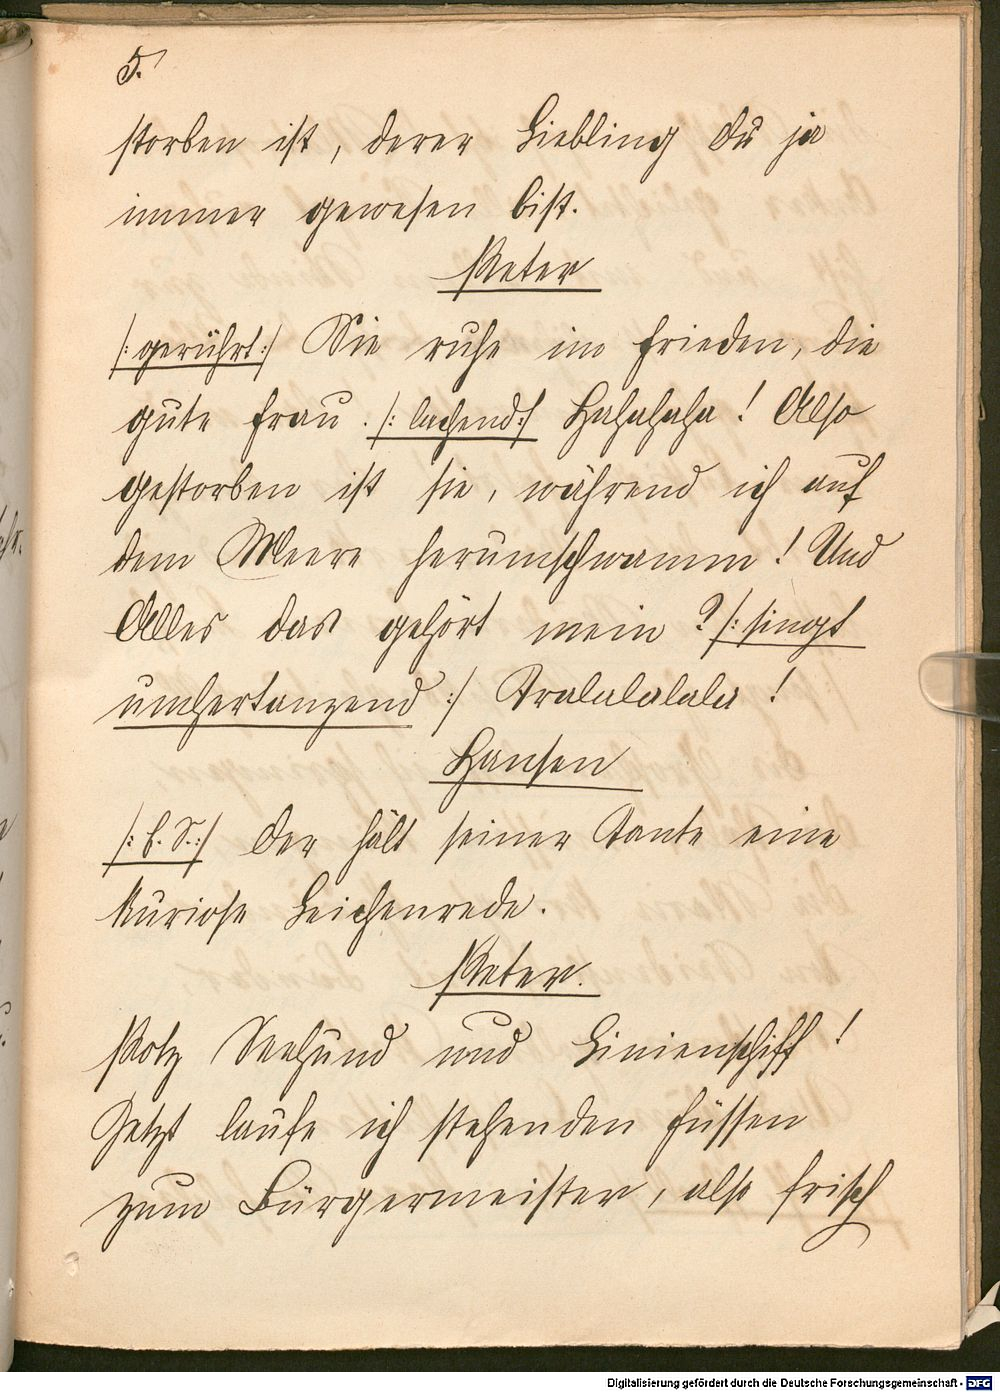 5.
storben ist, derer Liebling du ja
immer gewesen bist.
Peter
/: gerührt :/ Sie ruhe im Frieden, die
gute Frau. /: lachend :/ Hahahaha! Also
gestorben ist sie, während ich auf
dem Meere herumschwamm! Und
Alles das gehört mein? /: singt
umhertanzend :/ Tralalalala!
Hansen
/: f. S. :/ Der hält seiner Tante eine
kuriose Leichenrede.
Peter.
Potz Seehund und Linienschiff!
Jetzt laufe ich stehenden Füssen
zum Bürgermeister, also frisch
Digitalisierung gefördert durch die Deutsche Forschungsgemeinschaft - DFG